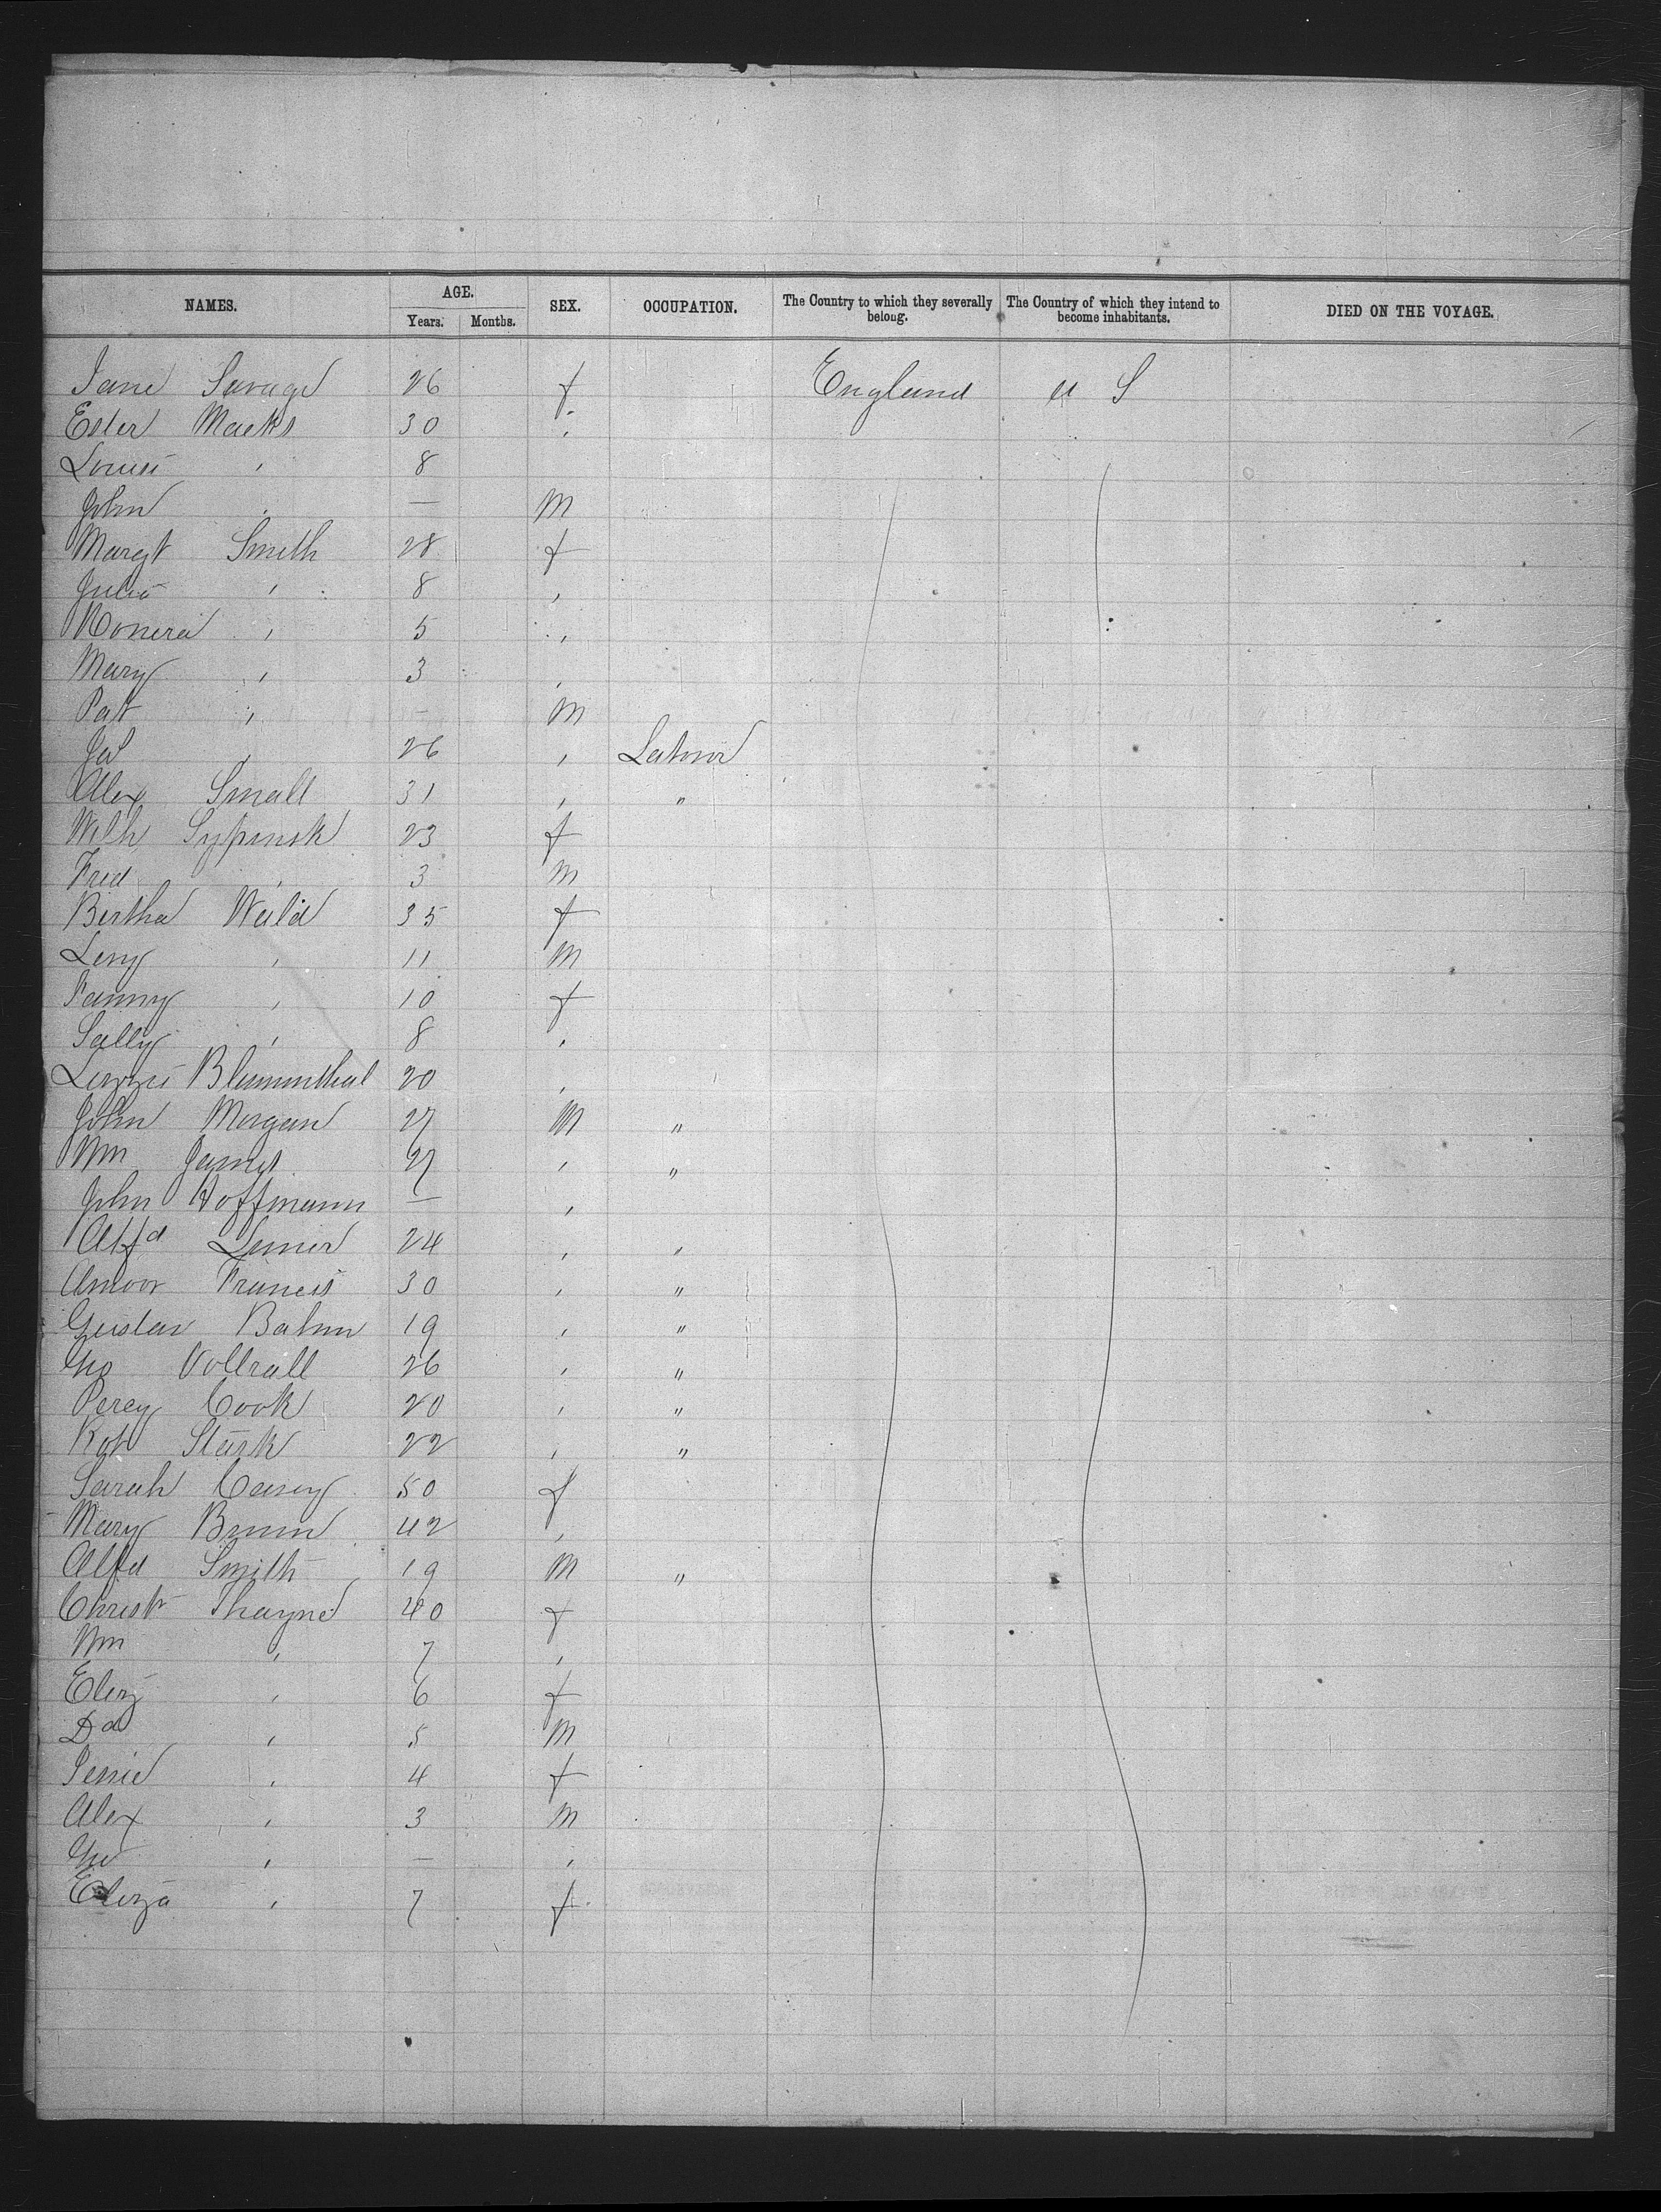 NAMES. AGE. SEX. OCCUPATION. The Country to which they severally belong. The Country of which they intend to become inhabitants. DIED ON THE VOYAGE.
Years. Months.
Jane Savage 26 f England U S
Ester Marks 30 "
Louisi " 8
John " — M
Margt Smith 28 f
Julia " 8 "
Honera " 5 "
Mary " 3 "
Pat " — M
Jas " 26 " Labour
Alex Small 31 " "
Wilh Sypinsk 23 f
Fred " 3 M
Bertha Weild 35 f
Levy " 11 M
Fanny " 10 f
Sally " 8 "
Blumenthal 20 "
John Morgan 27 M "
Wm James 27 " "
John Hoffmann — "
Alfd 24 " "
Francis 30 " "
Gustav Bahm 19 " "
Geo Vollrall 26 " "
Percy Cook 20 " "
Robt Stark 22 " "
Sarah Casey 50 f
Mary Brown 42 "
Alfd Smith 19 M "
Christr Thayne 40 f
Wm " 7 "
Eliz " 6 f
Dd " 5 M
Jessie " 4 f
Alex " 3 M
Geo " — "
Eliza " 7 f